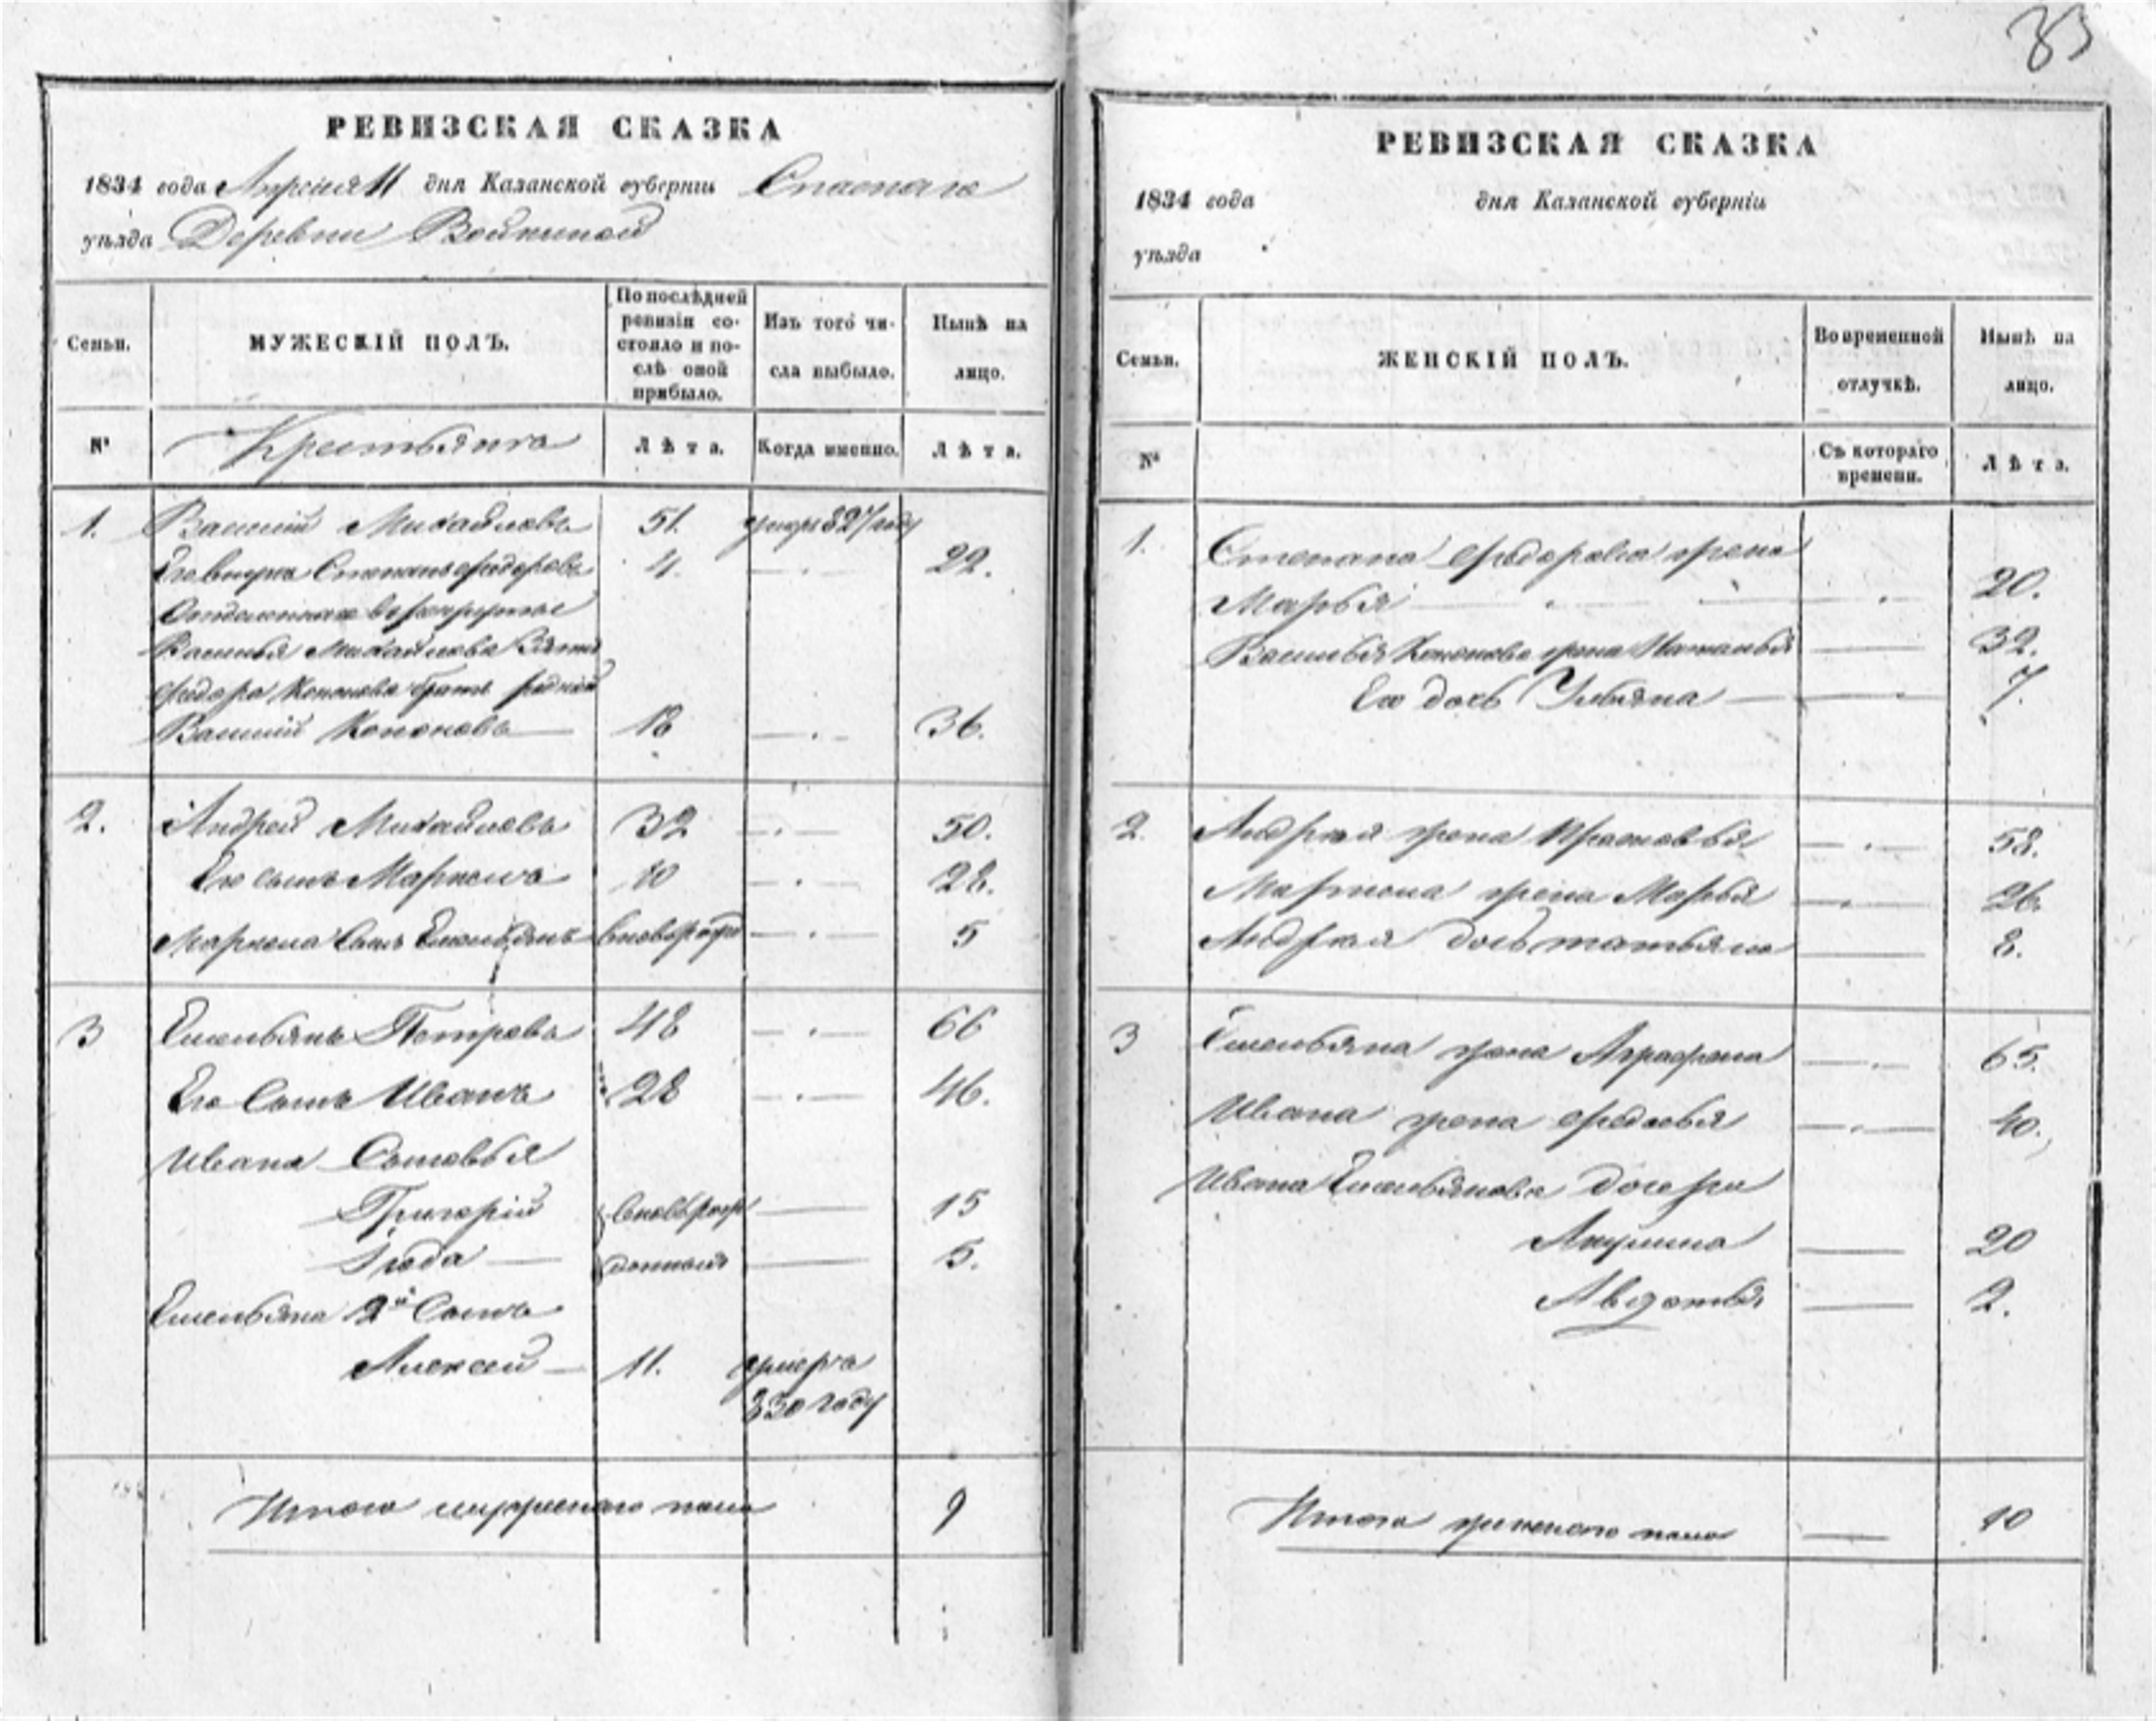 83
РЕВИЗСКАЯ СКАЗКА
1834 года Апрѣля 11 дня Казанской губерніи Спаскаго
уѣзда Деревни Войкиной
Семьи.
МУЖЕСКІЙ ПОЛЪ.
По послѣдней ревизіи со-
стояло и по-
слѣ оной
прибыло.
Изъ того чи-
сла выбыло.
Нынѣ на
лицо.
№
Крестьянъ
Лѣта.
Когда именно.
Лѣта.
1. Василій Михайловъ 51. умеръ 827 году
Его внукъ Степанъ Федоровъ 4. 22.
Василья Михайлова зятя
Федора Кононова братъ родной
Василій Кононовъ 18 36.
2. Андрей Михайловъ 32 50.
Его сынъ Маркелъ 10 28.
Маркела сынъ Емельянъ вновь рожд 5
3 Емельянъ Петровъ 48 66
Его сынъ Иванъ 28 46.
Ивана Сыновья
Григорій вновь рож 15
Іюда денныя 5.
Емельяна 2й Сынъ
Алексей 11. умеръ
830 году
Итого мужескаго пола 9
РЕВИЗСКАЯ СКАЗКА
1834 года дня Казанской губерніи
уѣзда
Семьи.
ЖЕНСКІЙ ПОЛЪ.
Во временной
отлучкѣ.
Нынѣ на
лицо.
№
Съ котораго
времени.
Лѣта.
1. Степана Федорова жена
Марья 20.
Василья Кононова жена Наталья 32.
Его дочь Ульяна 7.
2. Андрея жена Прасковья 58.
Маркела жена Марья 26.
Андрея дочь татьяна 8.
3 Емельяна жена Аграфена 65.
Ивана жена Федосья 40.
Ивана Емельянова дочери
Акулина 20
Авдотья 2.
Итого женского пола 10